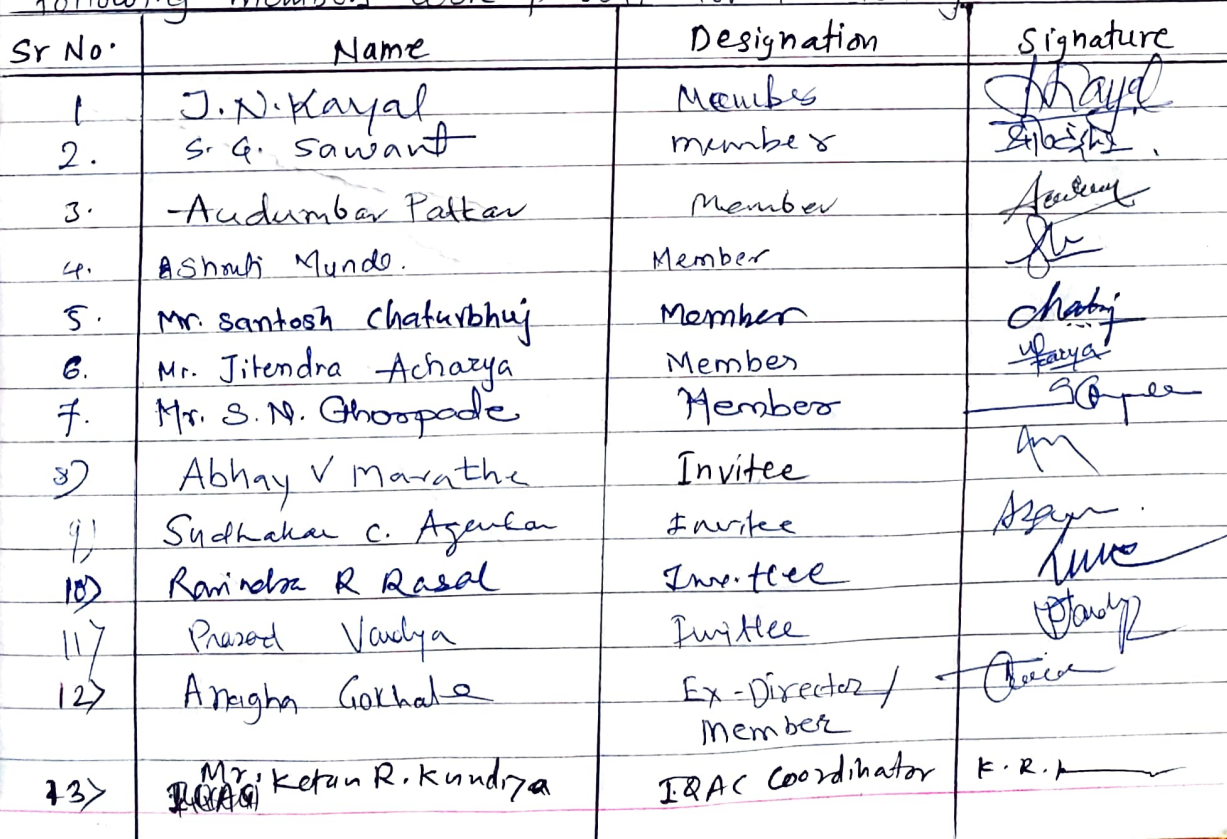 following members were present for
Sr No. Name Designation Signature
1 J. N. Kayal Member
2. S. G. Sawant member
3. Audumbar Patkar Member
4. Ashruti Munde. Member
5. Mr. Santosh Chaturbhuj Member
6. Mr. Jitendra Acharya Member
7. Mr. S. N. Ghorpade Member
8) Abhay V Marathe Invitee
9) Sudhakar C. Agenkar Invitee
10) Ravindra R Rasal Invitee
11) Prasad Vaidya Invittee
12) Anagha Gokhale Ex-Director/
Member
13) Mr. Ketan R. Kundiya IQAC Coordinator K. R.